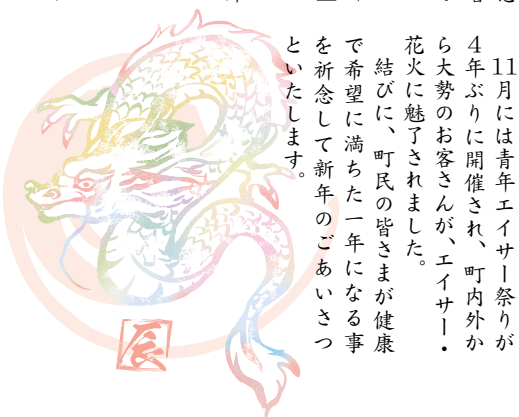 11月には青年エイサー祭りが
4年ぶりに開催され、町内外か
ら大勢のお客さんが、エイサー・
花火に魅了されました。
結びに、町民の皆さまが健康
で希望に満ちた一年になる事
を祈念して新年のごあいさつ
といたします。
辰